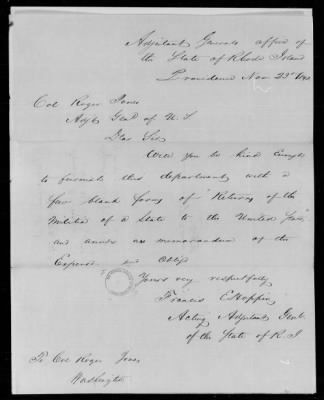 Adjutant Generals office of
the State of Rhode Island
Providence Nov 23rd
Col Roger Jones
Adjt Genl of U.S
Dear Sir
Will you be kind enough
to furnish this department with a
few blank forms of "Returns of the
Militia of a State to the United States"
and annex a memorandum of the
Expense and Oblige
Yours very respectfully
Francis E Hoppin
Acting Adjutant Genl
of the State of R.I
To Col Roger Jones
Washington